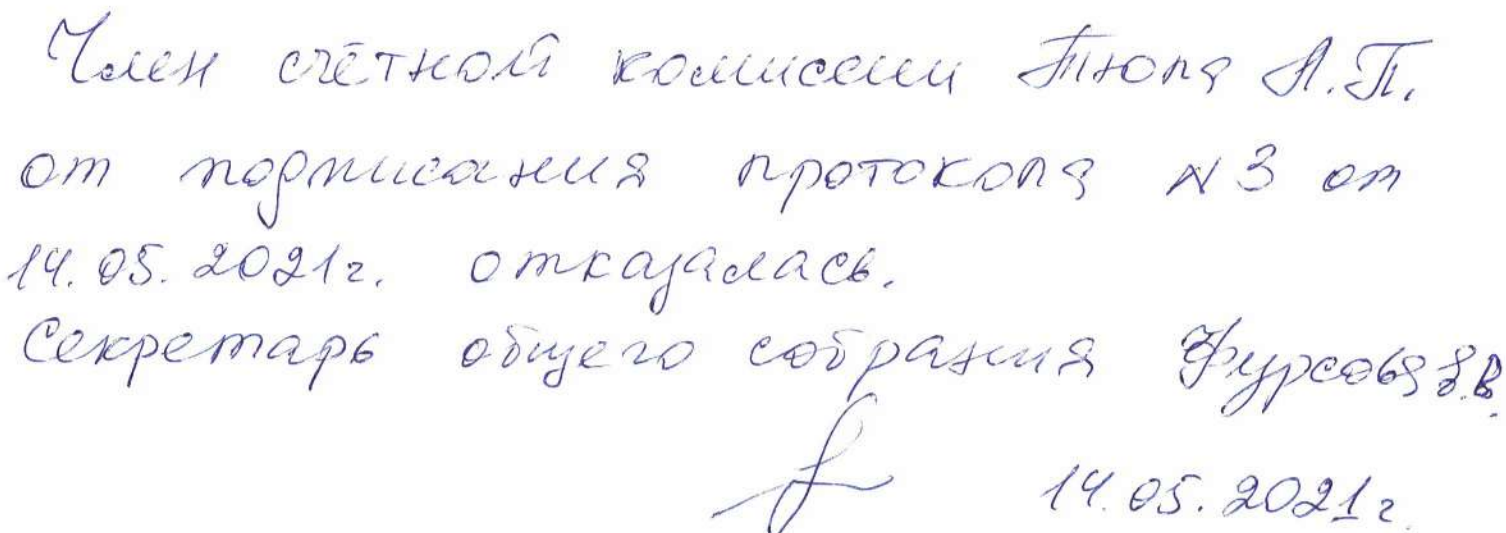 Член счётной комиссии Тюпа А.П.
от подписания протокола N3 от
14.05.2021г. отказалась.
Секретарь общего собрания Фурсова З.В.
14.05.2021г.